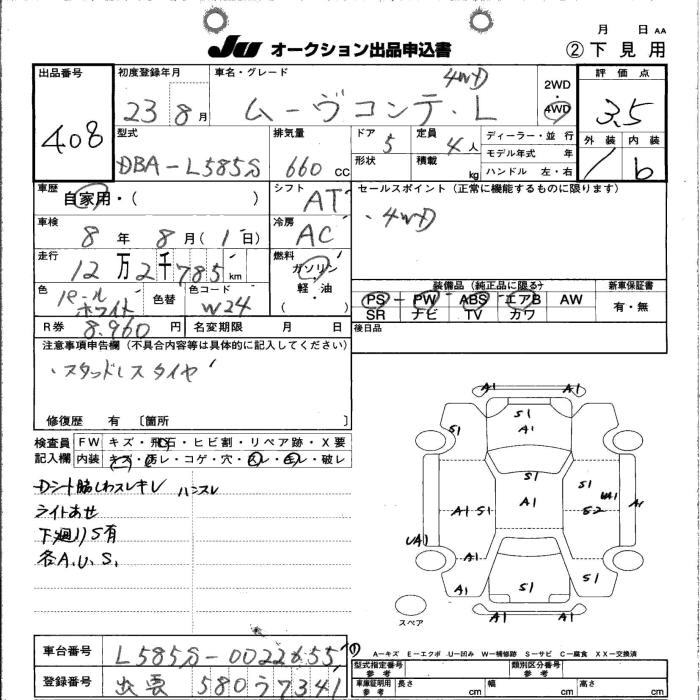 月 日 AA
JU オークション出品申込書 ② 下見用
出品番号 408
初度登録年月 23 8月
車名・グレード ムーヴコンテ.L 4WD
2WD
4WD
評価点 3.5
外装 内装 b
型式 DBA-L585S
排気量 660 CC
ドア 5
形状
定員 4人
積載 kg
ディーラー・並行
モデル年式 年
ハンドル 左・右
車歴 自家用・( )
シフト AT
セールスポイント(正常に機能するものに限ります)
・4WD
車検 8年 8月(1日)
冷房 AC
走行 12万2千785km
燃料 ガソリン・軽・油
( )
色 パールホワイト
色替
色コード W24
装備品(純正品に限る)
PS-PW ABS エアB AW
SR ナビ TV カワ
新車保証書
有・無
R券 8.960円
名変期限 月 日
後日品
注意事項申告欄(不具合内容等は具体的に記入してください)
・スタッドレスタイヤ
修復歴 有 〔箇所 〕
検査員記入欄
FW キズ・飛石・ヒビ割・リペア跡・X要
内装 キズ・汚レ・コゲ・穴・スレ・・破レ
Dシート脇しわスレキレ ハンスレ
ライトあせ
下廻りS有
各A.U.S.
A1 A1
S1 S1
A1
S1 S1
A1 S1 A1 UA1 A1
S2
UA1
A1
A1 S1 S1
A1 A1
スペア
A-キズ E-エクボ U-凹み W-補修跡 S-サビ C-腐食 XX-交換済
車台番号 L585S-0022655
登録番号 出雲 580 う 7341
型式指定番号 参考
類別区分番号 参考
車庫証明用 参考
長さ cm
幅 cm
高さ cm